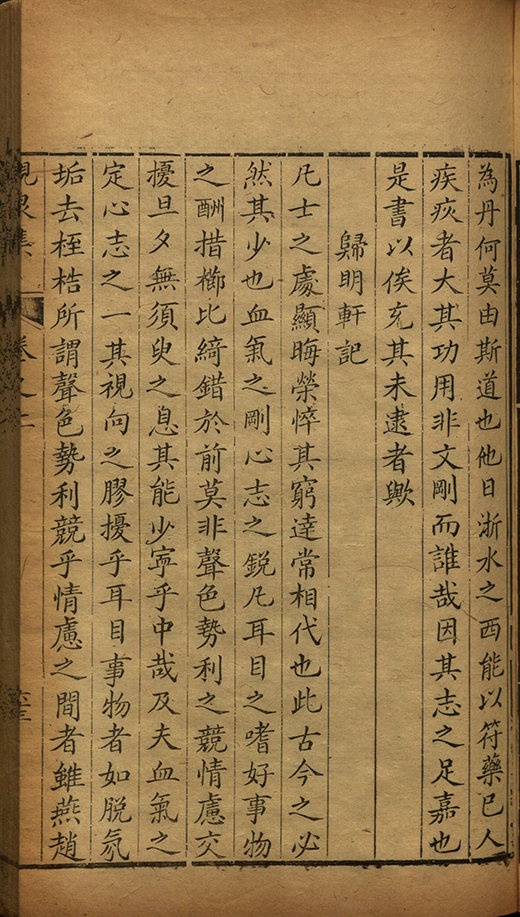 為丹何莫由斯道也他日浙水之西能以符藥已人
疾疢者大其功用非文剛而誰哉因其志之足嘉也
是書以俟充其未逮者歟
歸明軒記
凡士之處顯晦榮悴其窮達常相代也此古今之必
然其少也血氣之剛心志之銳凡耳目之嗜好事物
之酬措櫛比綺錯於前莫非聲色勢利之競情慮交
擾旦夕無須臾之息其能少寧乎中哉及夫血氣之
定心志之一其視向之膠擾乎耳目事物者如脫氛
垢去桎梏所謂聲色勢利競乎情慮之間者雖燕趙
峴泉集 卷之二